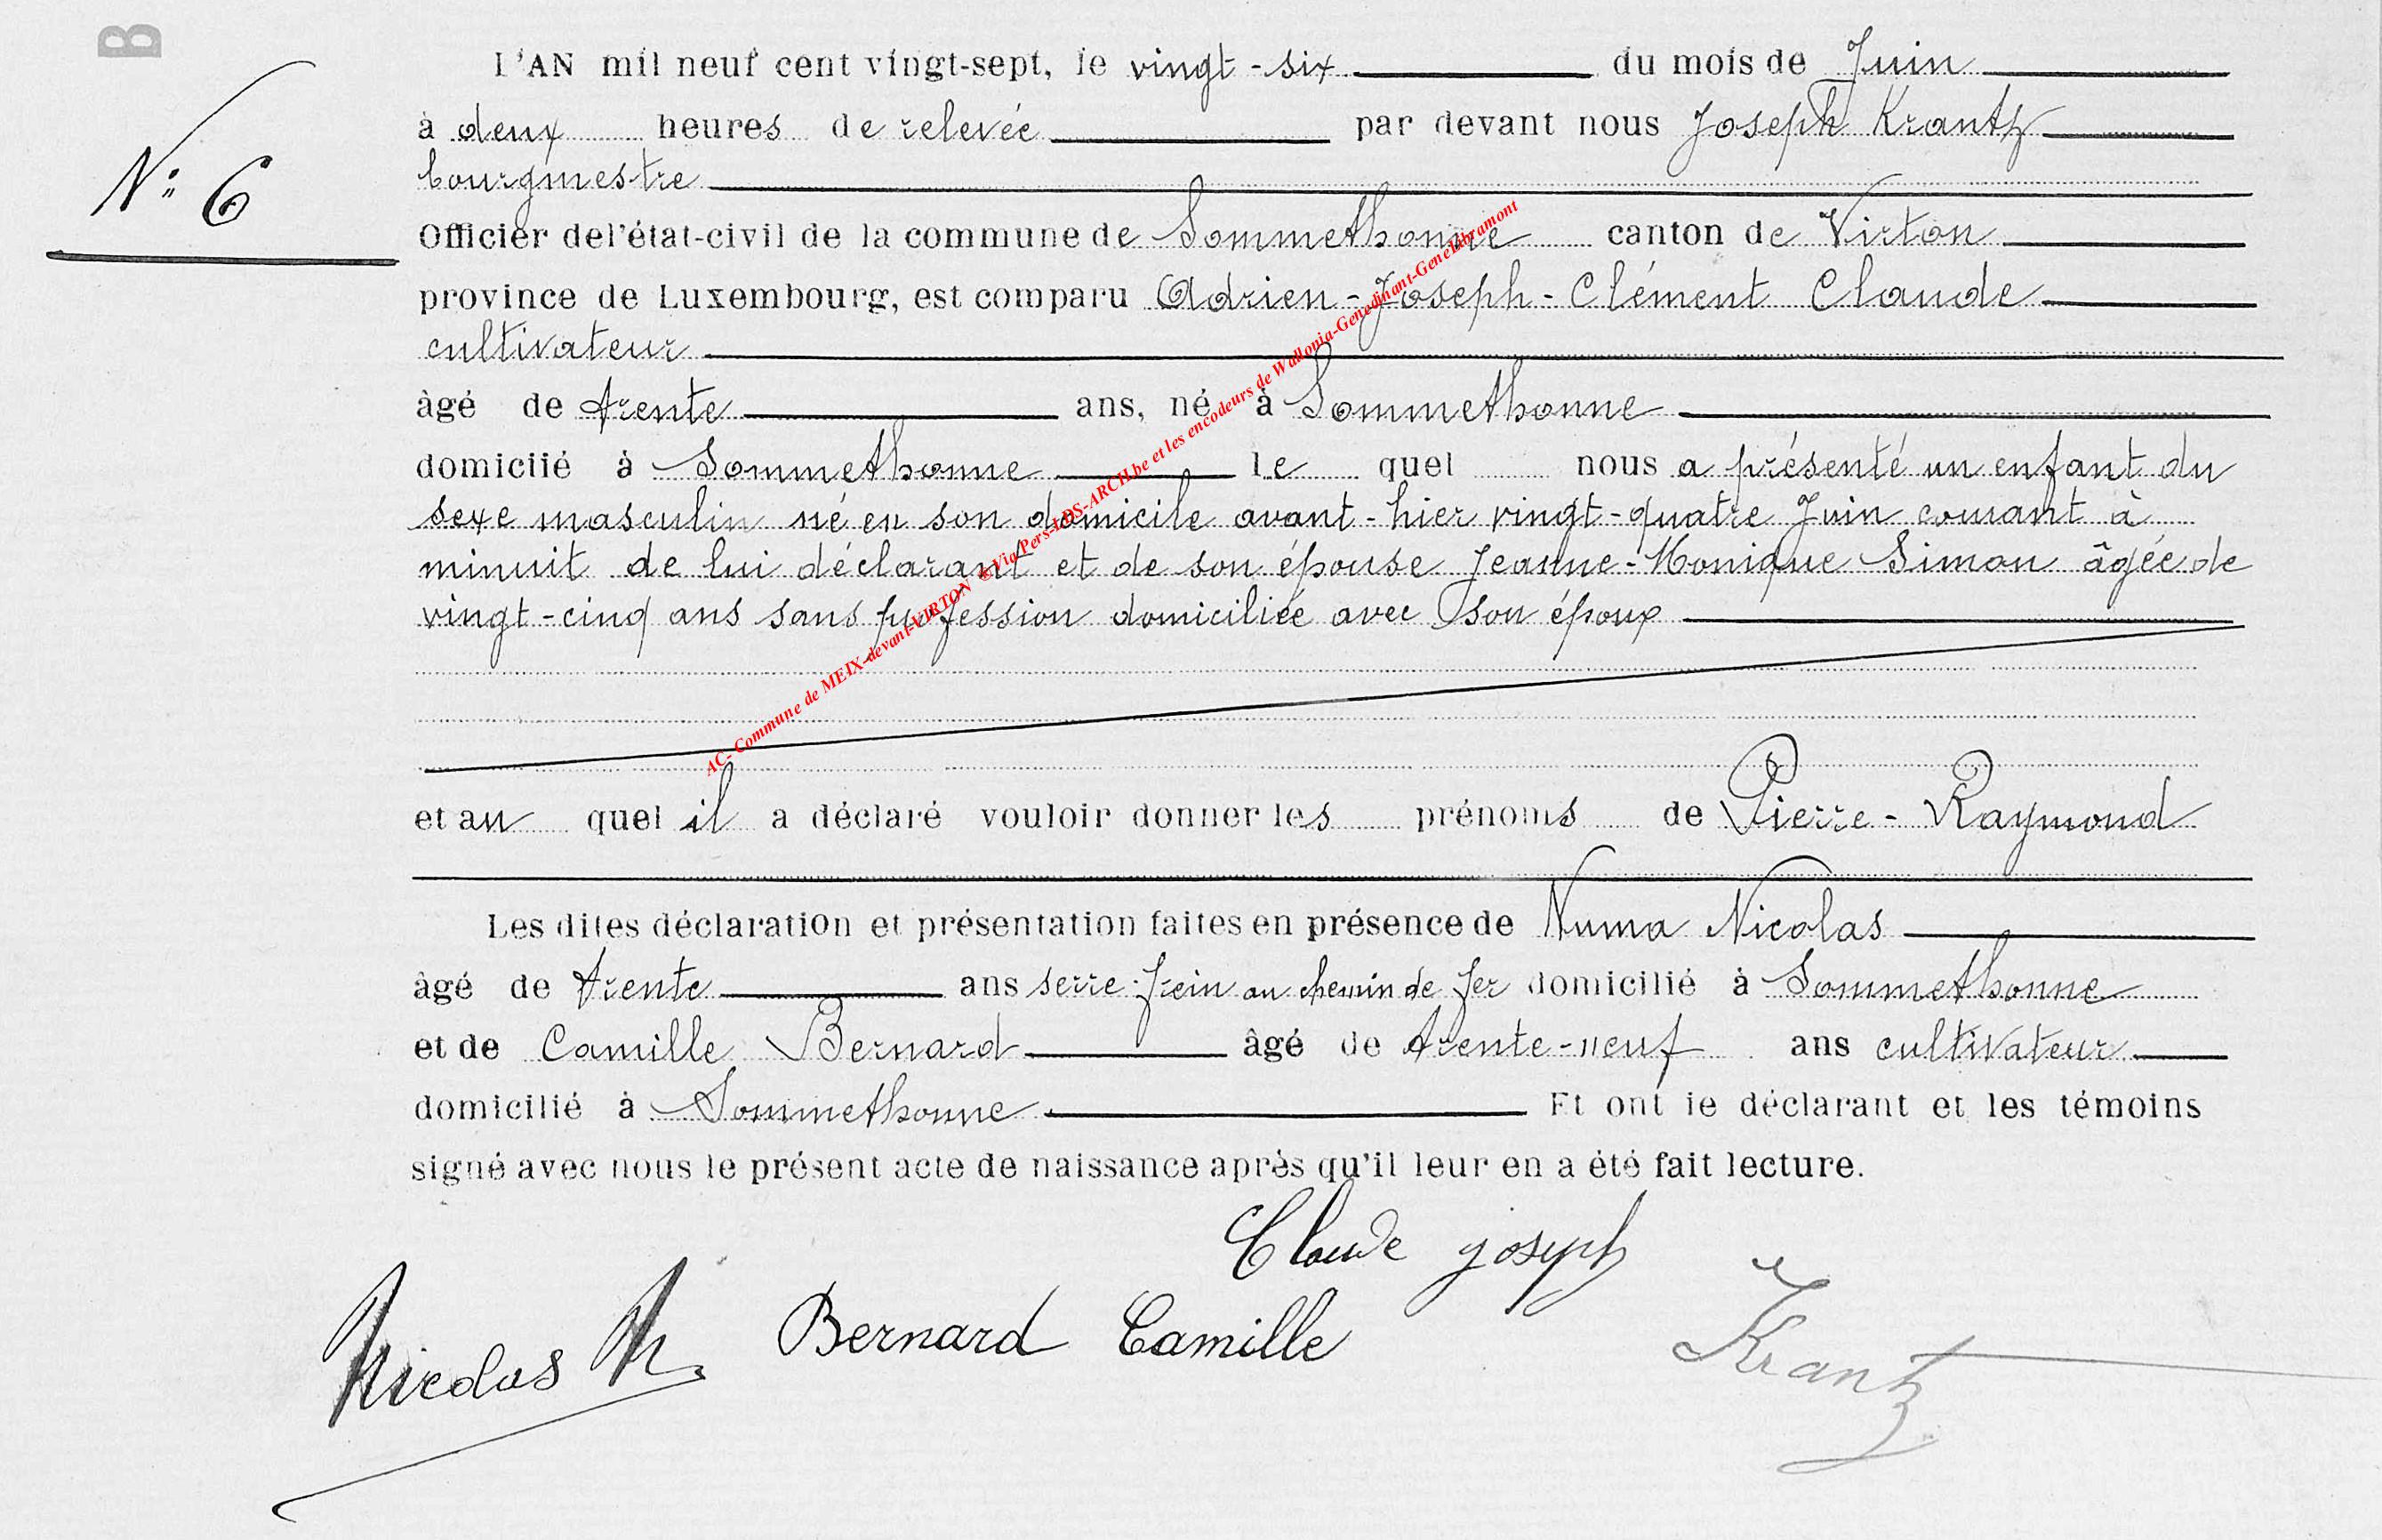 B
L'AN mil neuf cent vingt-sept, le vingt-six du mois de Juin
à deux heures de relevée par devant nous Joseph Krantz
bourgmestre
N° 6
Officier de l'état-civil de la commune de Sommethonne canton de Virton
province de Luxembourg, est comparu Adrien-Joseph-Clément Claude
cultivateur
âgé de trente ans, né à Sommethonne
domicilié à Sommethonne le quel nous a présenté un enfant du
sexe masculin né en son domicile avant-hier vingt-quatre Juin courant à
minuit de lui déclarant et de son épouse Jeanne-Monique Simon âgée de
vingt-cinq ans sans profession domiciliée avec son époux
AC- Commune de MEIX-devant-VIRTON © Via Pers-LDS-ARCH.be et les encodeurs de Wallonia-Genedinant-GeneLibramont
et au quel il a déclaré vouloir donner les prénoms de Pierre-Raymond
Les dites déclaration et présentation faites en présence de Numa Nicolas
âgé de trente ans serre-frein au chemin de fer domicilié à Sommethonne
et de Camille Bernard âgé de trente-neuf ans cultivateur
domicilié à Sommethonne Et ont le déclarant et les témoins
signé avec nous le présent acte de naissance après qu'il leur en a été fait lecture.
Claude joseph
Nicolas N. Bernard Camille Krantz